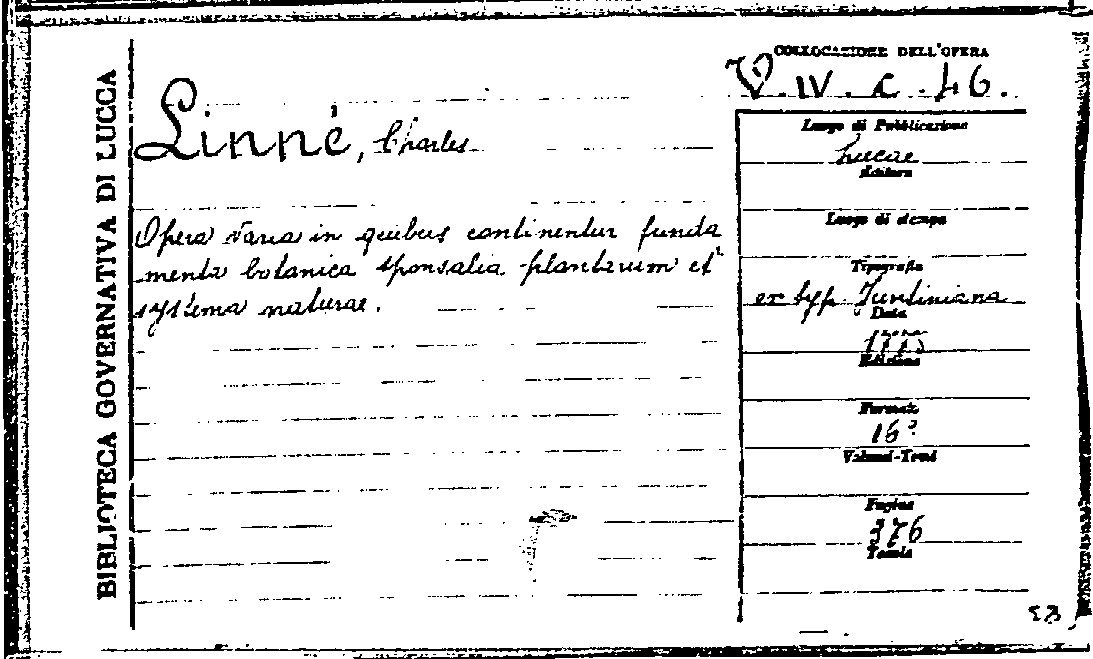 BIBLIOTECA GOVERNATIVA DI LUCCA
Linné, Charles
Opera varia in quibus continentur funda
menta botanica sponsalia plantarum et
systema naturae.
COLLOCAZIONE DELL'OPERA
V. IV. C. 46.
Luogo di Pubblicazione
Lucae
Editore
Luogo di stampa
Tipografia
ex typ Juntiniana
Data
Edizione
Formato
16°
Volumi-Tomi
Pagine
376
Tavole